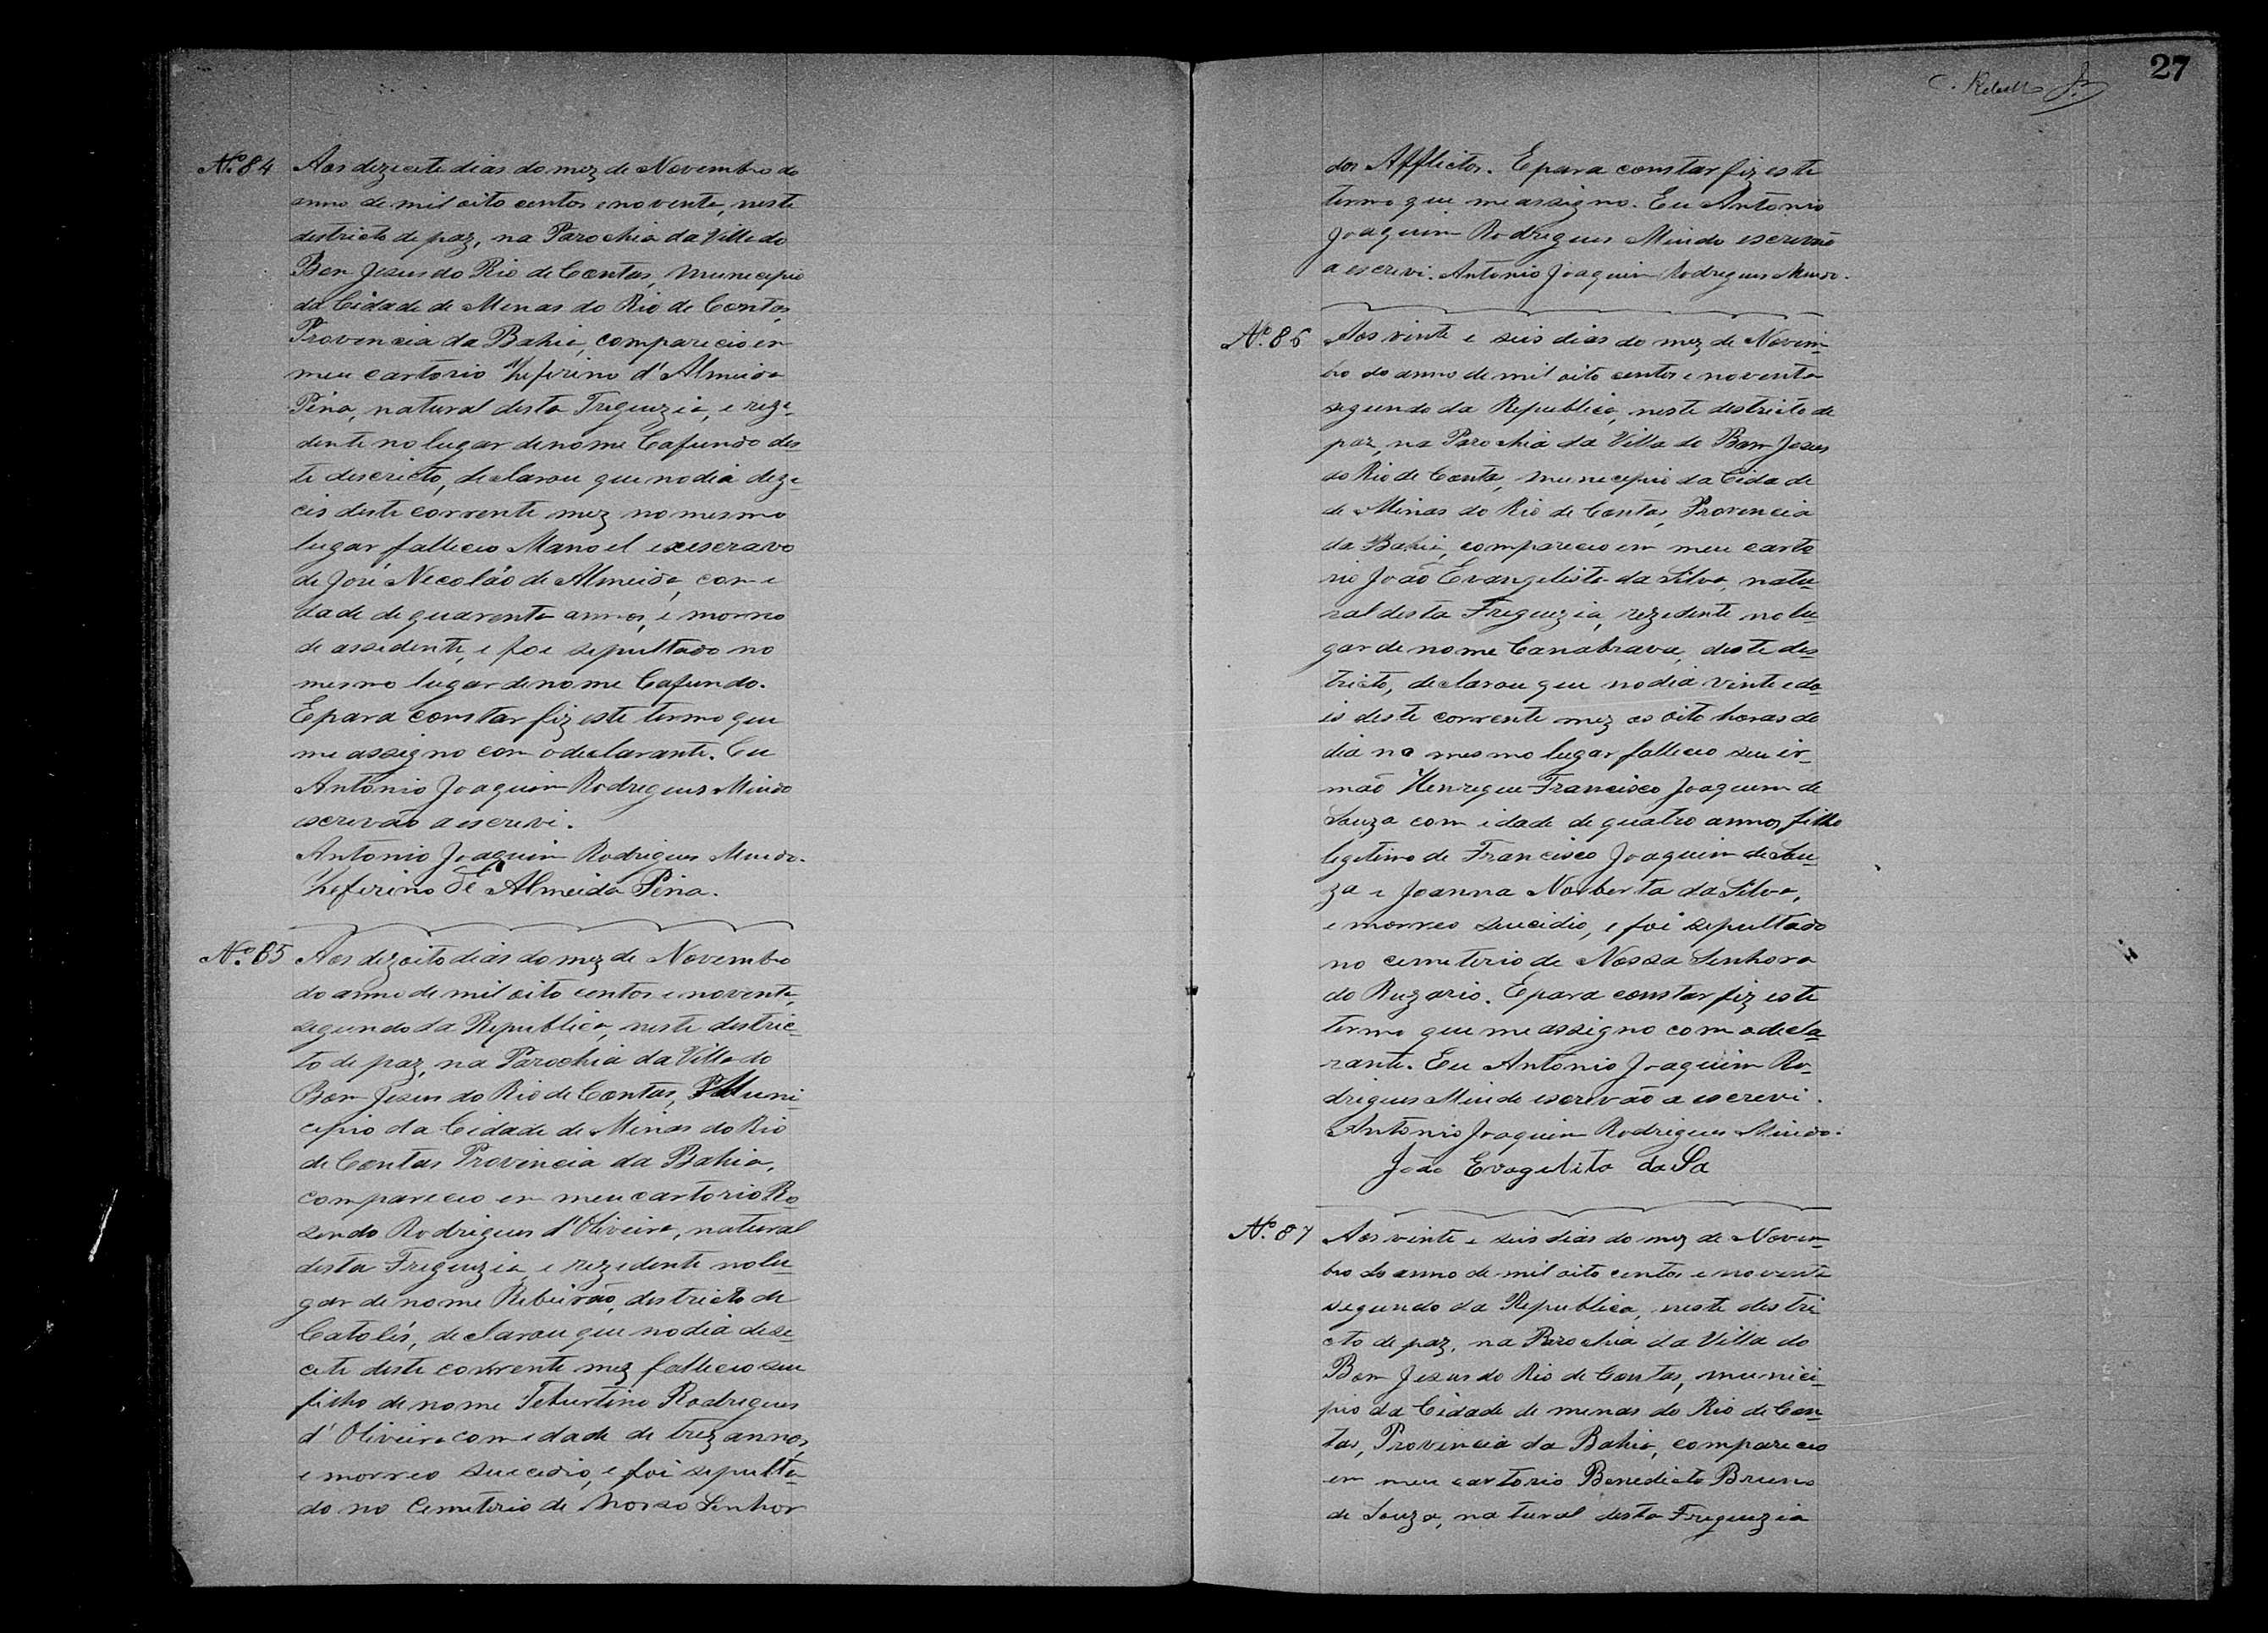 Nº 84 Aos dezicete dias do mez de Novembro do
anno de mil oito centos e noventa, neste
destricto de paz, na Parochia da Villa do
Bom Jesus do Rio de Contas, Municepio
da Cidade de Menas do Rio de Contas,
Provencia da Bahia, compareciо em
meu cartorio Zeferino d'Almeida
Pina, natural desta Freguezia, e reze-
dente no lugar de nome Cafundo des-
te descricto, declarou que no dia deze-
ceis deste corrente mez no mesmo
lugar falleceo Manoel exescravo
de José Necoláo de Almeida, com e
dade de quarenta annos, e morreo
de assidente, e foe sepultado no
mesmo lugar de nome Cafundo.
E para constar fiz este termo que
me assigno com o declarante. Eu
Antonio Joaquim Rodrigues
escrevão a escrevi.
Antonio Joaquim Rodrigues
Zeferino de Almeida Pina.
Nº 85 Aos dezoito dias do mez de Novembro
do anno de mil oito centos e noventa,
segundo da Republica, neste destric-
to de paz, na Parochia da Villa do
Bom Jesus do Rio de Contas, Muni-
cepio da Cidade de Minas do Rio
de Contas Provincia da Bahia,
compareceo em meu cartorio Ro
sendo Rodrigues d'Oliveira, natural
desta Freguezia, e rezedente no lu-
gar de nome Ribeirão, destricto de
Catolés, declarou que no dia deze-
cete deste corrente mez falleceo seu
filho de nome Teburtino Rodrigues
d'Oliveira com edade de trez annos,
e morreo sucedio, e foi sepulta-
do no Cemeterio de Nosso Senhor
27
dos Afflictos. E para constar fiz este
termo que me assigno. Eu Antonio
Joaquim Rodrigues escrevão
a escrevi. Antonio Joaquim Rodrigues
Nº 86 Aos vinte e seis dias do mez de Novem-
bro do anno de mil oito centos e noventa
segundo da Republica, neste destricto de
paz, na Parochia da Villa do Bom Jesus
do Rio de Conta, Municepio da Cidade
de Minas do Rio de Contas, Provencia
da Bahia, compareceo em meu carto
rio João Evangelista da Silva, natu-
ral desta Freguezia, rezedente no lu-
gar de nome Canabrava, deste des-
tricto, declarou que no dia vinte e do
is deste corrente mez as oito horas do
dia no mesmo lugar falleceo seu ir-
mão Henreque Francisco Joaquim de
Souza com idade de quatro annos, filho
legetimo de Francisco Joaquim de Sou-
za e Joanna Norberta da Silva,
e morreo sucidio, e foi sepultado
no cemeterio de Nossa Senhora
do Ruzario. E para constar fiz este
termo que me assigno com o decla-
rante. Eu Antonio Joaquim Ro-
drigues escrevão a escrevi.
Antonio Joaquim Rodrigues
João Evagelita da Sa
Nº 87 Aos vinte e seis dias do mez de Novem-
bro do anno de mil oito centos e noventa
segundo da Republica, neste destri
cto de paz, na Parochia da Villa do
Bom Jesus do Rio de Contas, munici-
pio da Cidade de menas do Rio de Con-
tas, Provincia da Bahia, compareceo
em meu cartorio Benedicto Bruno
de Souza, natural desta Freguezia